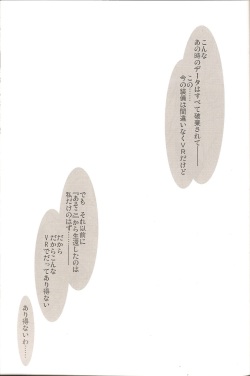 こんな
あの時のデータはすべて破棄されて――
この……
今の装備は間違いなくVRだけど
でも それ以前に
『あそこ』から生還したのは
私だけのはず――
だから
だからこんな
VRでだってあり得ない
あり得ないわ……